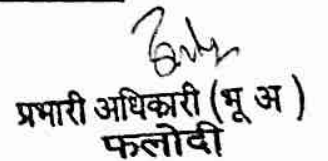 प्रभारी अधिकारी (भू अ )
फलोदी